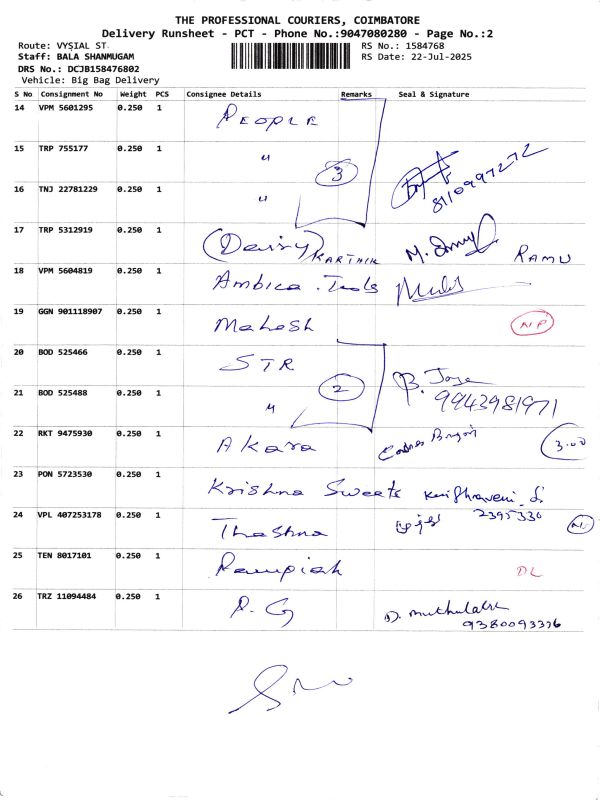 THE PROFESSIONAL COURIERS, COIMBATORE
Delivery Runsheet - PCT - Phone No.:9047080280 - Page No.:2
Route: VYSIAL ST
RS No.: 1584768
Staff: BALA SHANMUGAM
RS Date: 22-Jul-2025
DRS No.: DCJB158476802
Vehicle: Big Bag Delivery
S No Consignment No Weight PCS Consignee Details Remarks Seal & Signature
14 VPM 5601295 0.250 1 PEOPLE
15 TRP 755177 0.250 1 "
3
8110997272
16 TNJ 22781229 0.250 1 "
17 TRP 5312919 0.250 1 (Dairy) KARTHIK RAMU
18 VPM 5604819 0.250 1 Ambica Tools
19 GGN 901118907 0.250 1 Mahesh NP
20 BOD 525466 0.250 1 STR
2
B. Jose
9943981971
21 BOD 525488 0.250 1 "
22 RKT 9475930 0.250 1 Akara 3.00
23 PON 5723530 0.250 1 Krishna Sweets
2395330
24 VPL 407253178 0.250 1 Thashna
25 TEN 8017101 0.250 1 DL
26 TRZ 11094484 0.250 1 R. G
9380093376